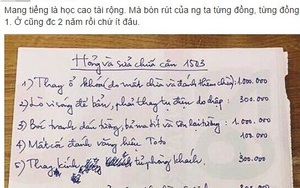 Mang tiếng là học cao tài rộng. Mà bòn rút của ng ta từng đồng, từng đồng
1. Ở cũng đc 2 năm rồi chứ ít đâu.
Hỏng và sửa chữa căn 1503
1) Thay ổ khóa (do mất chìa và đánh thêm chìa): 1.000.000
2) Lò vi sóng để bẩn, phải thay tụ điện do chập: 300.000
3) Bóc tranh dán tường, bả ma tít và sơn lại tường: 1.000.000
4) Mất cả danh vãng hiệu Toto 100.000
5) Thay kính tủ phòng khách. 300.000